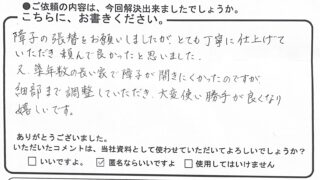 ●ご依頼の内容は、今回解決出来ましたでしょうか。
こちらに、お書きください。
障子の張替をお願いしましたが、とても丁寧に仕上げて
いただき頼んで良かったと思いました。
又、築年数の長い家で障子が開きにくかったのですが
細部まで調整していただき、大変使い勝手が良くなり
嬉しいです。
ありがとうございました。
いただいたコメントは、当社資料として使わせていただいてよろしいでしょうか？
□いいですよ。 ☑匿名ならいいですよ □使用してはいけません